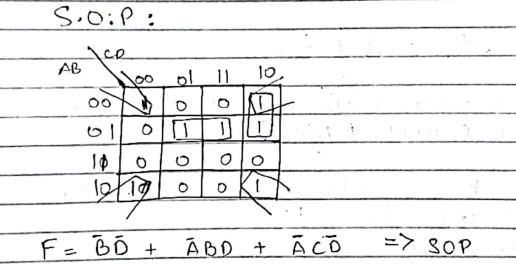 S.O.P:
CD
AB 00 01 11 10
00 1 0 0 1
01 0 1 1 1
10 0 0 0 0
10 10 0 0 1
F = B̄D̄ + ĀBD + ĀCD̄ => SOP